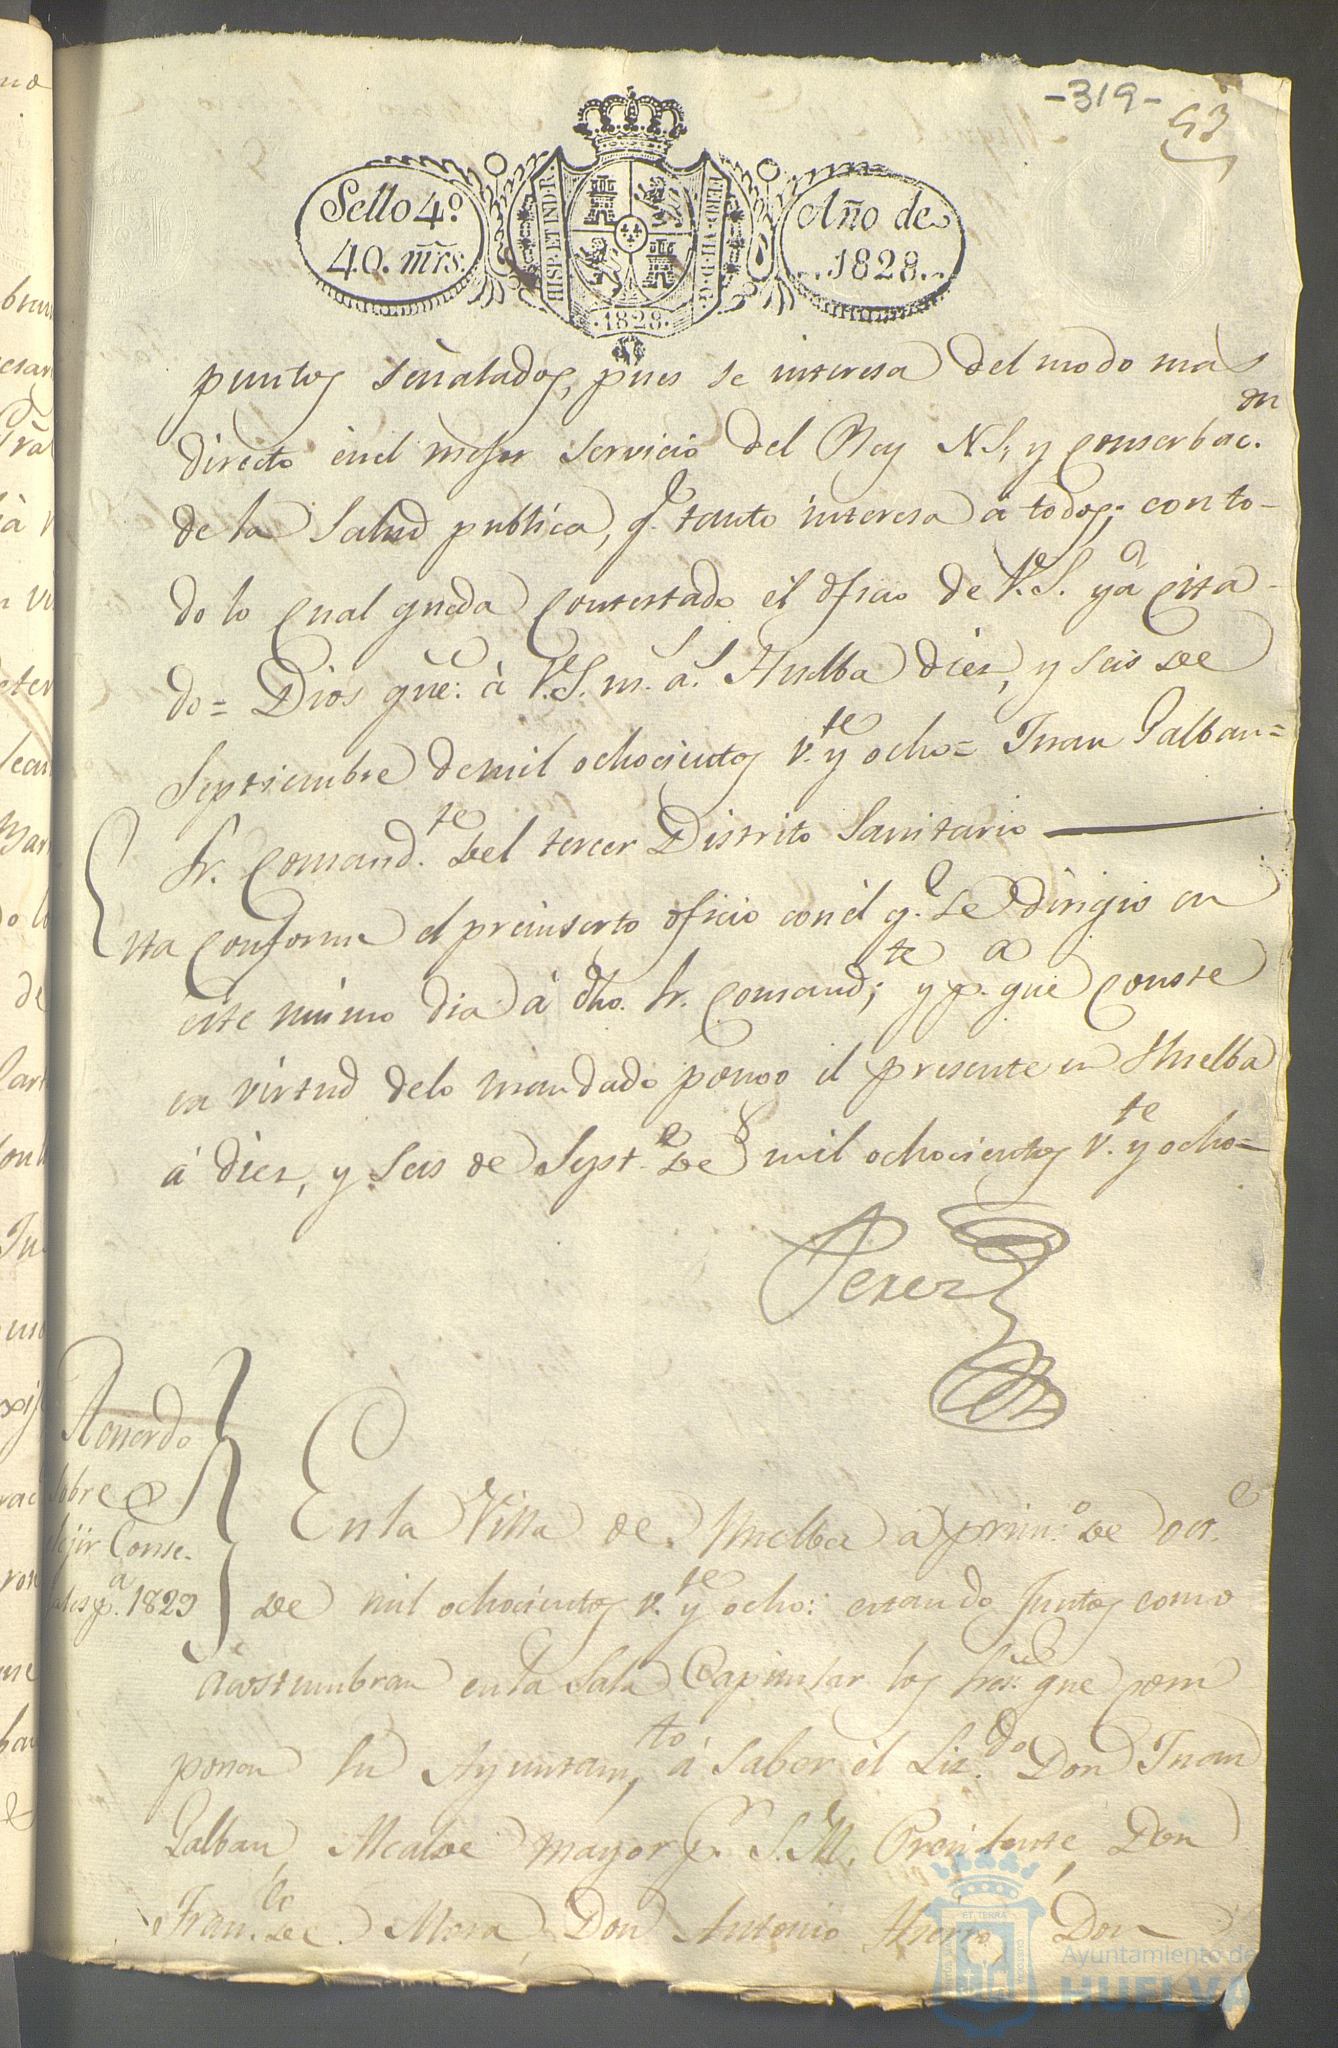 -319-
53
Sello 4.º
40. mrs.
HISP. ET IND. R.
FERD. VII. D. G.
.1828.
Año de
..1828..
puntos señalados, pues se interesa del modo mas
directo en el mejor servicio del Rey N.S. y conserbac.on
de la Salud publica, q.e tanto interesa á todos; con to-
do lo cual queda contestado el oficio de V.S. ya cita-
do= Dios gue. á V.S. m.s a.s Huelba diez, y seis de
Septiembre de mil ochocientos v.te y ocho= Juan Galban=
Sr. Comand.te del tercer Distrito Sanitario
Esta conforme el preinserto oficio con él q.e se dirigio en
este mismo dia á dho. Sr. Comand.te; y p.a que conste
en virtud delo mandado pongo el presente en Huelba
á diez, y seis de Sept.e de mil ochocientos v.te y ocho=
Perez
Acuerdo
sobre
elejir Conse-
jales p.a 1829
En la Villa de Huelba á prim.o de Oct.e
de mil ochocientos v.te y ocho: estando Juntos como
acostumbran en la Sala Capitular los Sres. que com
ponen su Ayuntam.to, á saber él Liz.do Don Juan
Galban, Alcalde mayor p.r S.M. Presidente, Don
Fran.co de Mora, Don Antonio Hierro, Don
Ayuntamiento de
HUELVA